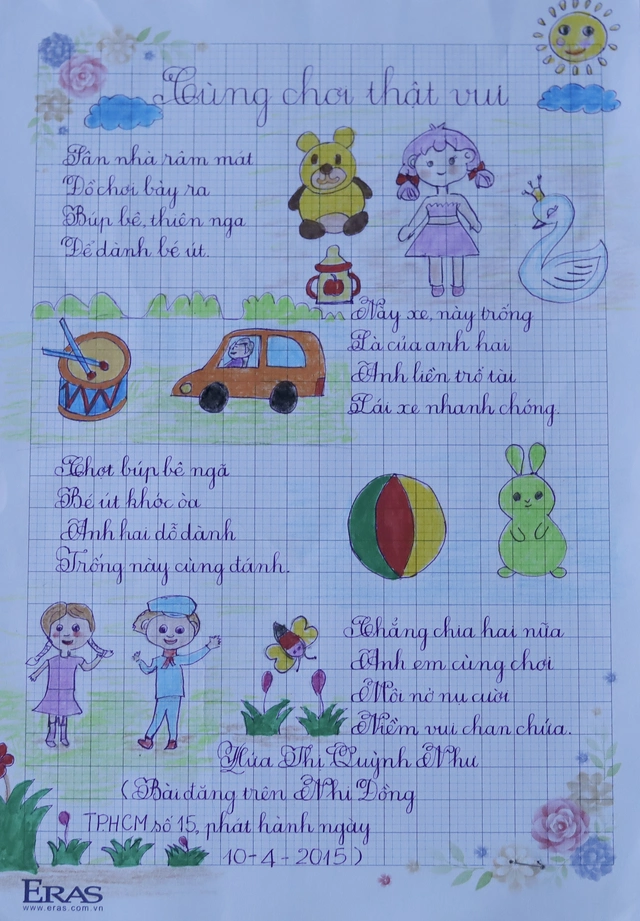 Cùng chơi thật vui
Sân nhà râm mát
Đồ chơi bày ra
Búp bê, thiên nga
Để dành bé út.
Nầy xe, này trống
Là của anh hai
Anh liền trổ tài
Lái xe nhanh chóng.
Chợt búp bê ngã
Bé út khóc òa
Anh hai dỗ dành
Trống này cùng đánh.
Chẳng chia hai nữa
Anh em cùng chơi
Môi nở nụ cười
Niềm vui chan chứa.
Hứa Thị Quỳnh Như
(Bài đăng trên Nhi Đồng
TPHCM số 15, phát hành ngày
10-4-2015)
ERAS
www.eras.com.vn